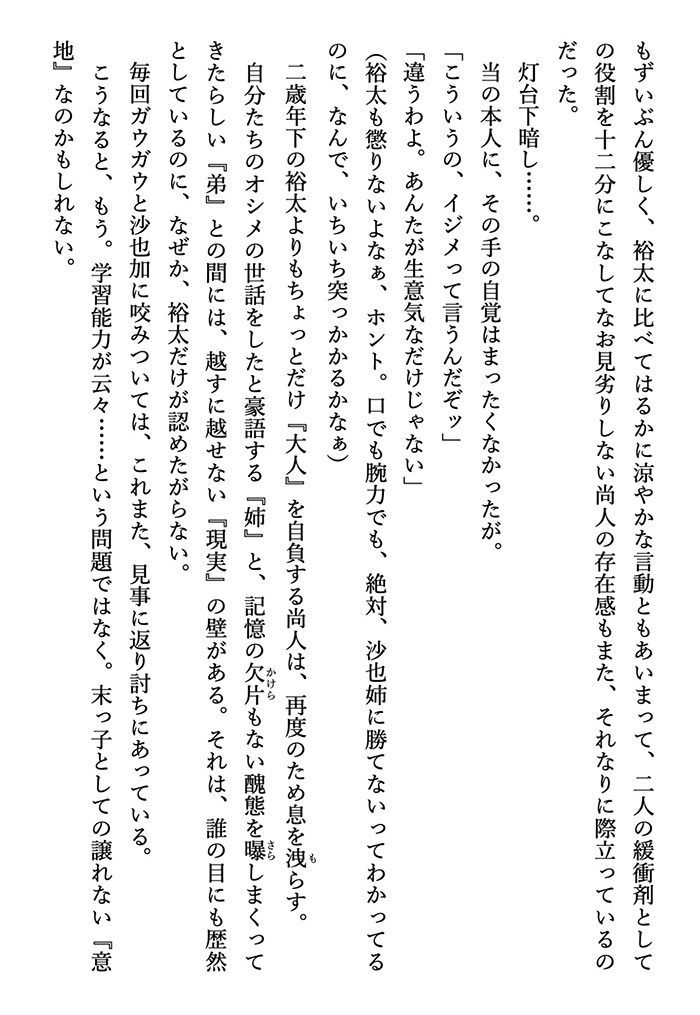 もずいぶん優しく、裕太に比べてはるかに涼やかな言動ともあいまって、二人の緩衝剤として
の役割を十二分にこなしてなお見劣りしない尚人の存在感もまた、それなりに際立っているの
だった。
灯台下暗し……。
当の本人に、その手の自覚はまったくなかったが。
「こういうの、イジメって言うんだぞッ」
「違うわよ。あんたが生意気なだけじゃない」
(裕太も懲りないよなぁ、ホント。口でも腕力でも、絶対、沙也姉に勝てないってわかってる
のに、なんで、いちいち突っかかるかなぁ)
二歳年下の裕太よりもちょっとだけ『大人』を自負する尚人は、再度のため息を洩らす。
自分たちのオシメの世話をしたと豪語する『姉』と、記憶の欠片もない醜態を曝しまくって
きたらしい『弟』との間には、越すに越せない『現実』の壁がある。それは、誰の目にも歴然
としているのに、なぜか、裕太だけが認めたがらない。
毎回ガウガウと沙也加に咬みついては、これまた、見事に返り討ちにあっている。
こうなると、もう。学習能力が云々……という問題ではなく。末っ子としての譲れない『意
地』なのかもしれない。